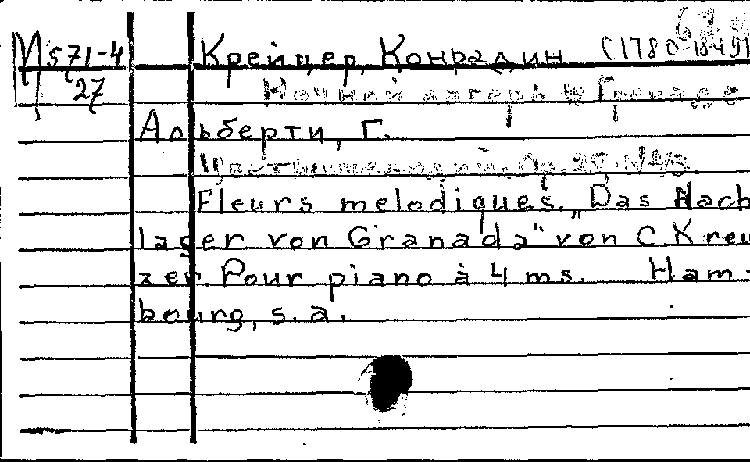 М 571-4 Крейцер, Конрадин (1780-1849)
27 Ночной лагерь в Гренаде
Альберти, Г.
Fleurs melodiques. „Das Nach
lager von Granada" von C. Kreu
zer. Pour piano à 4 ms. Ham-
bourg, s. a.